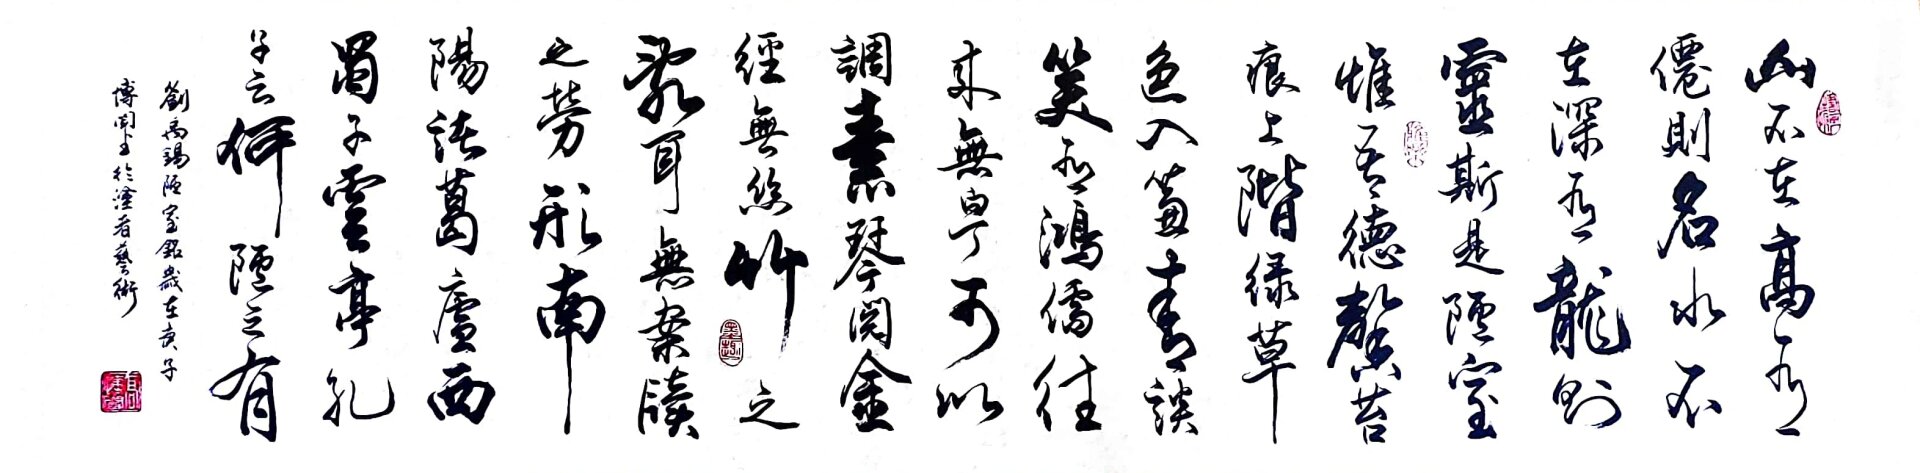 山不在高有
僊則名水不
在深有龍則
靈斯是陋室
惟吾德馨苔
痕上階綠草
色入簾青談
笑有鴻儒往
來無白丁可以
調素琴閱金
經無絲竹之
亂耳無案牘
之勞形南
陽諸葛廬西
蜀子雲亭孔
子云何陋之有
劉禹錫陋室銘歲在庚子
博書於藝術